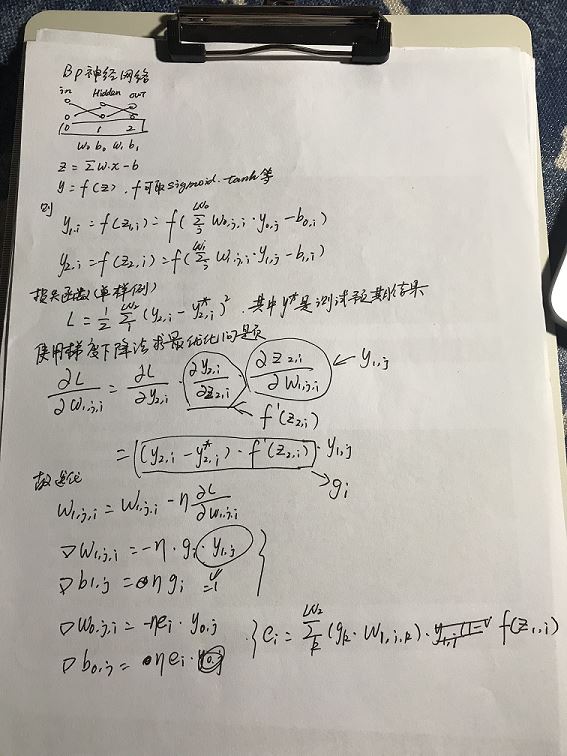 BP神经网络
in Hidden OUT
0 1 2
w₀ b₀ w₁ b₁
z = Σw·x - b
y = f(z), f可取sigmoid·tanh等
则
y₁,ᵢ = f(z₁,ᵢ) = f(Σⱼ^{W₀} w₀,ⱼ,ᵢ · y₀,ⱼ - b₀,ᵢ)
y₂,ᵢ = f(z₂,ᵢ) = f(Σⱼ^{W₁} w₁,ⱼ,ᵢ · y₁,ⱼ - b₁,ᵢ)
损失函数(单样例)
L = 1/2 Σᵢ^{W₂} (y₂,ᵢ - y*₂,ᵢ)². 其中y*是测试预期结果
使用梯度下降法求最优化问题
∂L/∂w₁,ⱼ,ᵢ = ∂L/∂y₂,ᵢ · ∂y₂,ᵢ/∂z₂,ᵢ · ∂z₂,ᵢ/∂w₁,ⱼ,ᵢ ← y₁,ⱼ
← f'(z₂,ᵢ)
= (y₂,ᵢ - y*₂,ᵢ) · f'(z₂,ᵢ) · y₁,ⱼ
→ gᵢ
故迭代
w₁,ⱼ,ᵢ = w₁,ⱼ,ᵢ - η ∂L/∂w₁,ⱼ,ᵢ
▽w₁,ⱼ,ᵢ = -η · gᵢ · y₁,ⱼ
▽b₁,ⱼ = ηgᵢ
▽w₀,ⱼ,ᵢ = -ηeᵢ · y₀,ⱼ { eᵢ = Σₖ^{W₂} (gₖ · w₁,ⱼ,ₖ) · f(z₁,ᵢ)
▽b₀,ⱼ = ηeᵢ